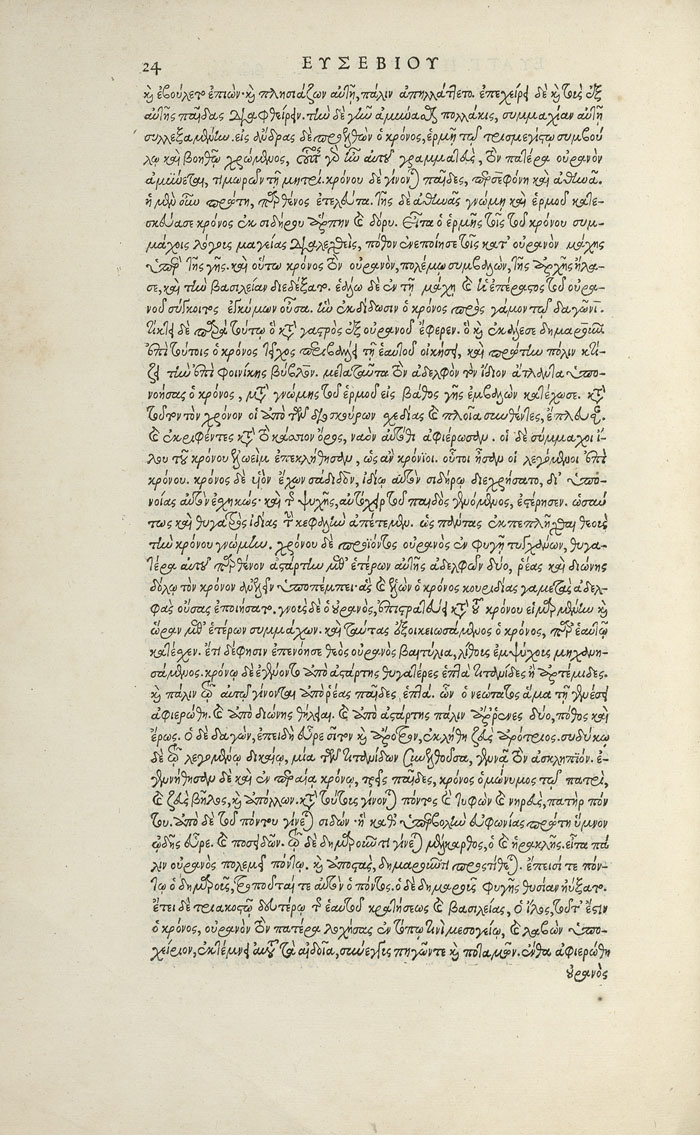 24 ΕΥΣΕΒΙΟΥ
καὶ ἐβούλετο ἐπιὼν καὶ πλησιάζων αὐτῇ, πάλιν ἀπηλλάττετο. ἐπεχείρει δὲ καὶ τοὺς ἐξ
αὐτῆς παῖδας διαφθείρειν. τὴν δὲ γῆν ἀμύνασθαι πολλάκις, συμμαχίαν αὐτῇ
συλλεξαμένην. εἰς ἄνδρας δὲ προελθὼν ὁ κρόνος, ἑρμῇ τῷ τρισμεγίστῳ συμβού
λῳ καὶ βοηθῷ χρώμενος, οὗτος γὸ ἦν αὐτοῦ γραμματεὺς, τὸν πατέρα οὐρανὸν
ἀμύνεται, τιμωρῶν τῇ μητρί. κρόνου δὲ γίνονται παῖδες, περσεφόνη καὶ ἀθηνᾶ.
ἡ μὲν οὖν πρώτη, παρθένος ἐτελεύτα. τῆς δὲ ἀθηνᾶς γνώμῃ καὶ ἑρμοῦ κατε-
σκεύασε κρόνος ἐκ σιδήρου ἅρπην καὶ δόρυ. Εἶτα ὁ ἑρμῆς τοῖς τοῦ κρόνου συμ-
μάχοις λόγοις μαγείας διαλεχθεὶς, πόθον ἐνεποίησε τοῖς κατ' οὐρανοῦ μάχης
ὑπὲρ τῆς γῆς. καὶ οὕτω κρόνος τὸν οὐρανὸν, πολέμῳ συμβαλὼν, τῆς ἀρχῆς ἤλα-
σε, καὶ τὴν βασιλείαν διεδέξατο. ἑάλω δὲ ἐν τῇ μάχῃ καὶ ἡ ἐπέραστος τοῦ οὐρα-
νοῦ σύγκοιτος ἐγκύμων οὖσα. ἣν ἐκδίδωσιν ὁ κρόνος πρὸς γάμον τῷ δαγῶνι.
τίκτει δὲ παρὰ τούτῳ ὃ κατὰ γαστρὸς ἐξ οὐρανοῦ ἔφερεν. ὃ καὶ ἐκάλεσε δημαροῦν.
ἐπὶ τούτοις ὁ κρόνος τεῖχος περιβάλλει τῇ ἑαυτοῦ οἰκήσει, καὶ πρώτην πόλιν κτί-
ζει τὴν ἐπὶ φοινίκης βύβλον. μετὰ ταῦτα τὸν ἀδελφὸν τὸν ἴδιον ἄτλαντα ὑπο-
νοήσας ὁ κρόνος, μετὰ γνώμης τοῦ ἑρμοῦ εἰς βάθος γῆς ἐμβαλὼν κατέχωσε. κατὰ
τοῦτον τὸν χρόνον οἱ ἀπὸ τῶν διοσκούρων σχεδίας καὶ πλοῖα συνθέντες, ἔπλευσαν.
καὶ ἐκριφέντες κατὰ τὸ κάσσιον ὄρος, ναὸν αὐτόθι ἀφιέρωσαν. οἱ δὲ σύμμαχοι ἴ-
λου τοῦ κρόνου ἐλωεὶμ ἐπεκλήθησαν, ὡς ἂν κρόνιοι. οὗτοι ἦσαν οἱ λεγόμενοι ἐπὶ
κρόνου. κρόνος δὲ υἱὸν ἔχων σάδιδον, ἰδίῳ αὐτὸν σιδήρῳ διεχρήσατο, δι' ὑπο-
νοίας αὐτὸν ἐσχηκώς· καὶ τῆς ψυχῆς, αὐτόχειρ τοῦ παιδὸς γενόμενος, ἐστέρησεν. ὡσαύ
τως καὶ θυγατρὸς ἰδίας τὴν κεφαλὴν ἀπέτεμεν. ὡς πάντας ἐκπεπλῆχθαι θεοὺς
τὴν κρόνου γνώμην. χρόνου δὲ προϊόντος οὐρανὸς ἐν φυγῇ τυγχάνων, θυγα-
τέρα αὐτοῦ παρθένον ἀστάρτην μεθ' ἑτέρων αὐτῆς ἀδελφῶν δύο, ῥέας καὶ διώνης
δόλῳ τὸν κρόνον ἀνελεῖν ὑποπέμπει· ἃς καὶ ἑλὼν ὁ κρόνος κουριδίας γαμετὰς ἀδελ-
φὰς οὔσας ἐποιήσατο. γνοὺς δὲ ὁ οὐρανὸς, ἐπιστρατεύει κατὰ τοῦ κρόνου εἱμαρμένην καὶ
ὥραν μεθ' ἑτέρων συμμάχων. καὶ ταύτας ἐξοικειωσάμενος ὁ κρόνος, παρ' ἑαυτῷ
κατέσχεν. ἔτι δέ φησιν ἐπενόησε θεὸς οὐρανὸς βαιτύλια, λίθους ἐμψύχους μηχανη-
σάμενος. κρόνῳ δὲ ἐγένοντο ἀπὸ ἀστάρτης θυγατέρες ἑπτὰ τιτανίδες ἢ ἀρτέμιδες.
καὶ πάλιν τῷ αὐτῷ γίνονται ἀπὸ ῥέας παῖδες ἑπτά. ὧν ὁ νεώτατος ἅμα τῇ γενέσει
ἀφιερώθη. καὶ ἀπὸ διώνης θήλειαι. καὶ ἀπὸ ἀστάρτης πάλιν ἄρρενες δύο, πόθος καὶ
ἔρως. ὁ δὲ δαγὼν, ἐπειδὴ εὗρε σῖτον καὶ ἄροτρον, ἐκλήθη ζεὺς ἀρότριος. συδύκῳ
δὲ τῷ λεγομένῳ δικαίῳ, μία τῶν τιτανίδων συνελθοῦσα, γεννᾷ τὸν ἀσκληπιόν. ἐ-
γεννήθησαν δὲ καὶ ἐν περαίᾳ κρόνῳ, τρεῖς παῖδες, κρόνος ὁμώνυμος τῷ πατρὶ,
καὶ ζεὺς βῆλος, καὶ ἀπόλλων. κατὰ τούτους γίνονται πόντος καὶ τυφὼν καὶ νηρεὺς, πατὴρ πόν
του. ἀπὸ δὲ τοῦ πόντου γίνεται σιδών· ἣ καθ' ὑπερβολὴν εὐφωνίας πρώτη ὕμνον
ᾠδῆς εὗρε. καὶ ποσειδῶν. τῷ δὲ δημαροῦντι γίνεται μέλκαρθος, ὁ καὶ ἡρακλῆς. εἶτα πά
λιν οὐρανὸς πολεμεῖ πόντῳ. καὶ ἀποστὰς, δημαροῦντι προστίθεται. ἔπεισί τε πόν-
τῳ ὁ δημαροῦς, τροποῦταί τε αὐτὸν ὁ πόντος. ὁ δὲ δημαροῦς φυγῆς θυσίαν ηὔξατο.
ἔτει δὲ τριακοστῷ δευτέρῳ τῆς ἑαυτοῦ κρατήσεως καὶ βασιλείας, ὁ ἶλος, τοῦτ' ἔστιν
ὁ κρόνος, οὐρανὸν τὸν πατέρα λοχήσας ἐν τόπῳ τινὶ μεσογείῳ, καὶ λαβὼν ὑπο-
χείριον, ἐκτέμνει αὐτοῦ τὰ αἰδοῖα, σύνεγγυς πηγῶν τε καὶ ποταμῶν. ἔνθα ἀφιερώθη
οὐρανὸς